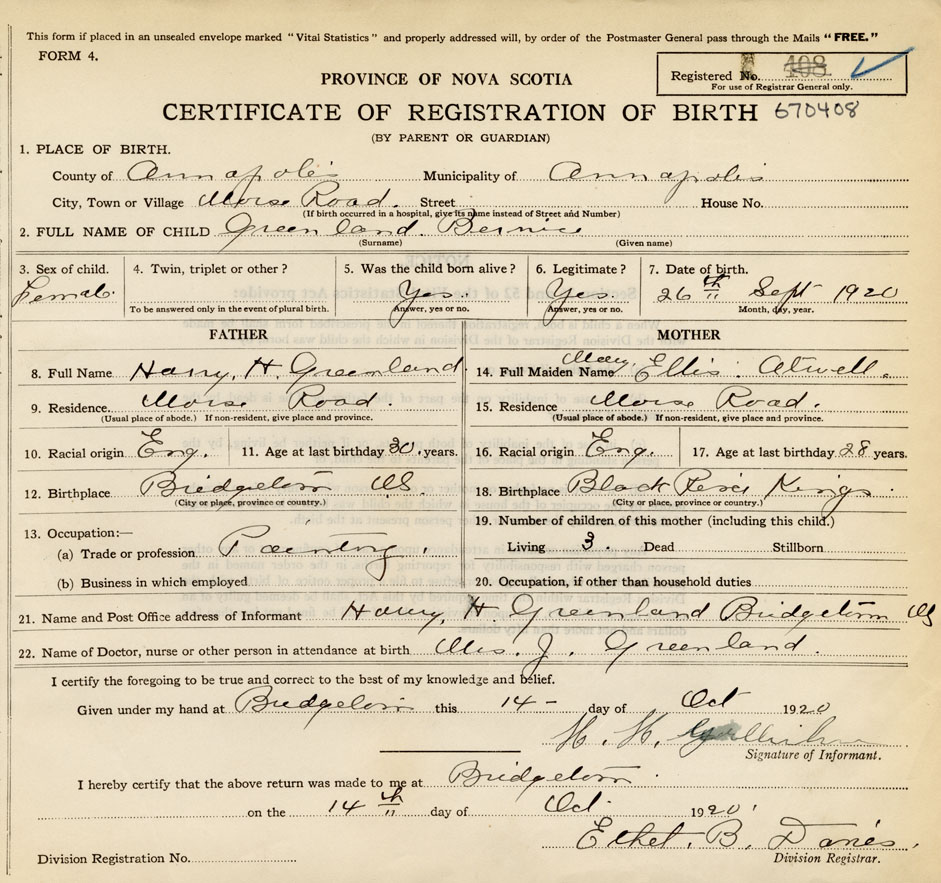 This form if placed in an unsealed envelope marked "Vital Statistics" and properly addressed will, by order of the Postmaster General pass through the Mails "FREE."
FORM 4.
Registered No. 408
For use of Registrar General only.
PROVINCE OF NOVA SCOTIA
CERTIFICATE OF REGISTRATION OF BIRTH 670408
(BY PARENT OR GUARDIAN)
1. PLACE OF BIRTH.
County of Annapolis Municipality of Annapolis
City, Town or Village Morse Road. Street House No.
(If birth occurred in a hospital, give its name instead of Street and Number)
2. FULL NAME OF CHILD Greenland. Bernice
(Surname) (Given name)
3. Sex of child. 4. Twin, triplet or other? 5. Was the child born alive? 6. Legitimate? 7. Date of birth.
Female. Yes. Yes. 26th Sept 1920
To be answered only in the event of plural birth. Answer, yes or no. Answer, yes or no. Month, day, year.
FATHER MOTHER
8. Full Name Harry, H. Greenland. 14. Full Maiden Name Mary Ellis. Atwell.
9. Residence. Morse Road. 15. Residence Morse Road.
(Usual place of abode.) If non-resident, give place and province. (Usual place of abode.) If non-resident, give place and province.
10. Racial origin Eng. 11. Age at last birthday 30. years. 16. Racial origin Eng. 17. Age at last birthday 28 years.
12. Birthplace Bridgetown NS. 18. Birthplace Black Kings.
(City or place, province or country.) (City or place, province or country.)
13. Occupation:— 19. Number of children of this mother (including this child.)
(a) Trade or profession Living 3. Dead Stillborn
(b) Business in which employed 20. Occupation, if other than household duties
21. Name and Post Office address of Informant Harry, H. Greenland Bridgetown NS
22. Name of Doctor, nurse or other person in attendance at birth Mrs. J. Greenland.
I certify the foregoing to be true and correct to the best of my knowledge and belief.
Given under my hand at Bridgetown this 14- day of Oct 1920
H. H.
Signature of Informant.
I hereby certify that the above return was made to me at Bridgetown.
on the 14th day of Oct. 1920
Ethel. B. Daniels.
Division Registration No. Division Registrar.